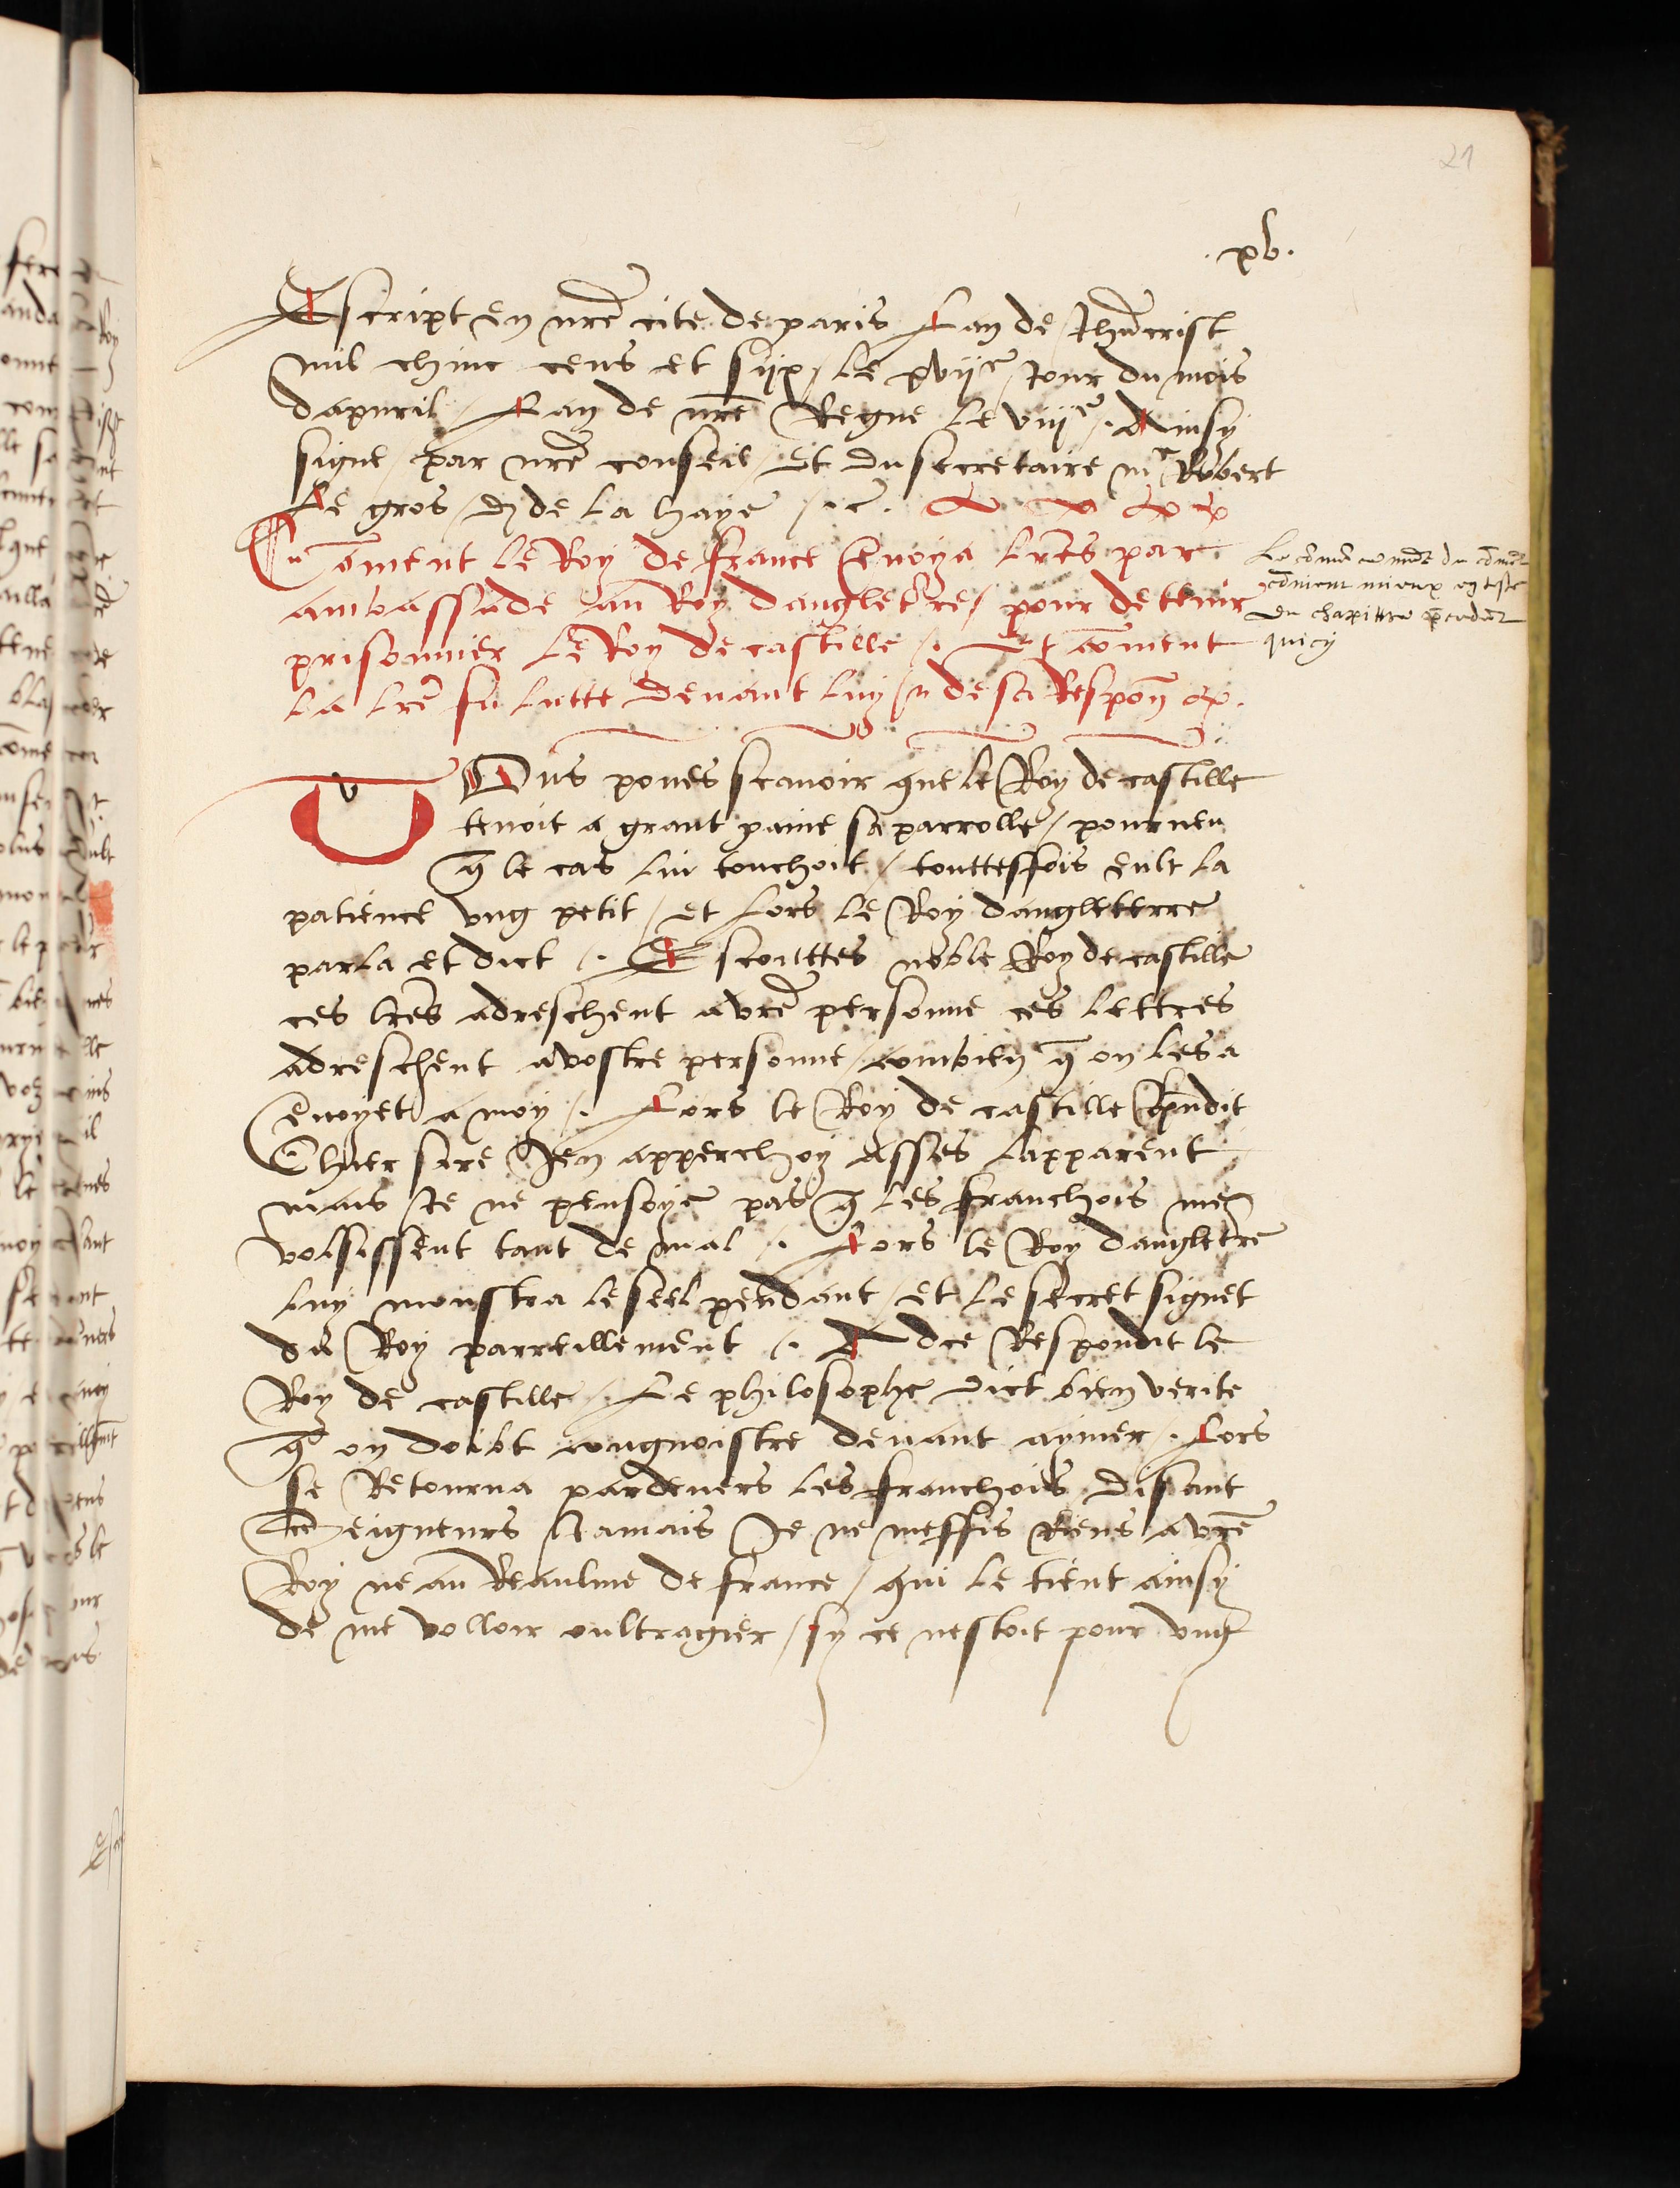 21
.xv.
Escript en nr̃e cite de paris Lan de Jhũcrist
mil chinc cens et siix / Le xviie Jour du mois
dapuril / Lan de nr̃e Regne Le viiie /. Ainsy
signe / par nr̃e conseil / Et du secretaire mr Robert
Le gros / dj de La haye /. c.
Cõment Le Roy de france Enuoya Lr̃es par
ambassade au Roy dangleterre / pour detenir
prisonnier Le Roy de castille /. Et cõment
La Lr̃e fu Lutte deuant Luy / et de sa Respon̄
Le cõmencemẽt du
cõuient mieux en teste
du chapittre
quicy
Vous poues scauoir que Le Roy de castille
tenoit a grant paine sa parrolle / pourueu
q̃ le cas Lui touchoit / touttesfois eult La
patience vng petit / et Lors Le Roy dangleterre
parla et dict /. Escouttes noble Roy de castille
ces Lr̃es adreschent a vr̃e personne ces Lettres
adreschent a vostre personne / combien q̃ on Les a
Enuoyet a moy /. Lors le Roy de castille Rp̃ndit
Chier sire Jen apperchoy asses Lapparent
mais Je ne pensoye pas q̃ Les franchois me
volsissent tant de mal /. Lors le Roy dangletr̃e
Luy monstra Le seel pendant / et Le secret signet
du Roy parreillement /. Adce Respondit le
Roy de castille /. Le philosophe dict bien verite
q̃ on doibt congnoistre deuant aymer /. Lors
se Retourna pardeuers Les franchois disant
Seigneurs Jamais Je ne meffis Riens a vr̃e
Roy ne au Reaulme de france / qui Le tient ainsy
de me volloir oultragier / sy ce nestoit pour vng